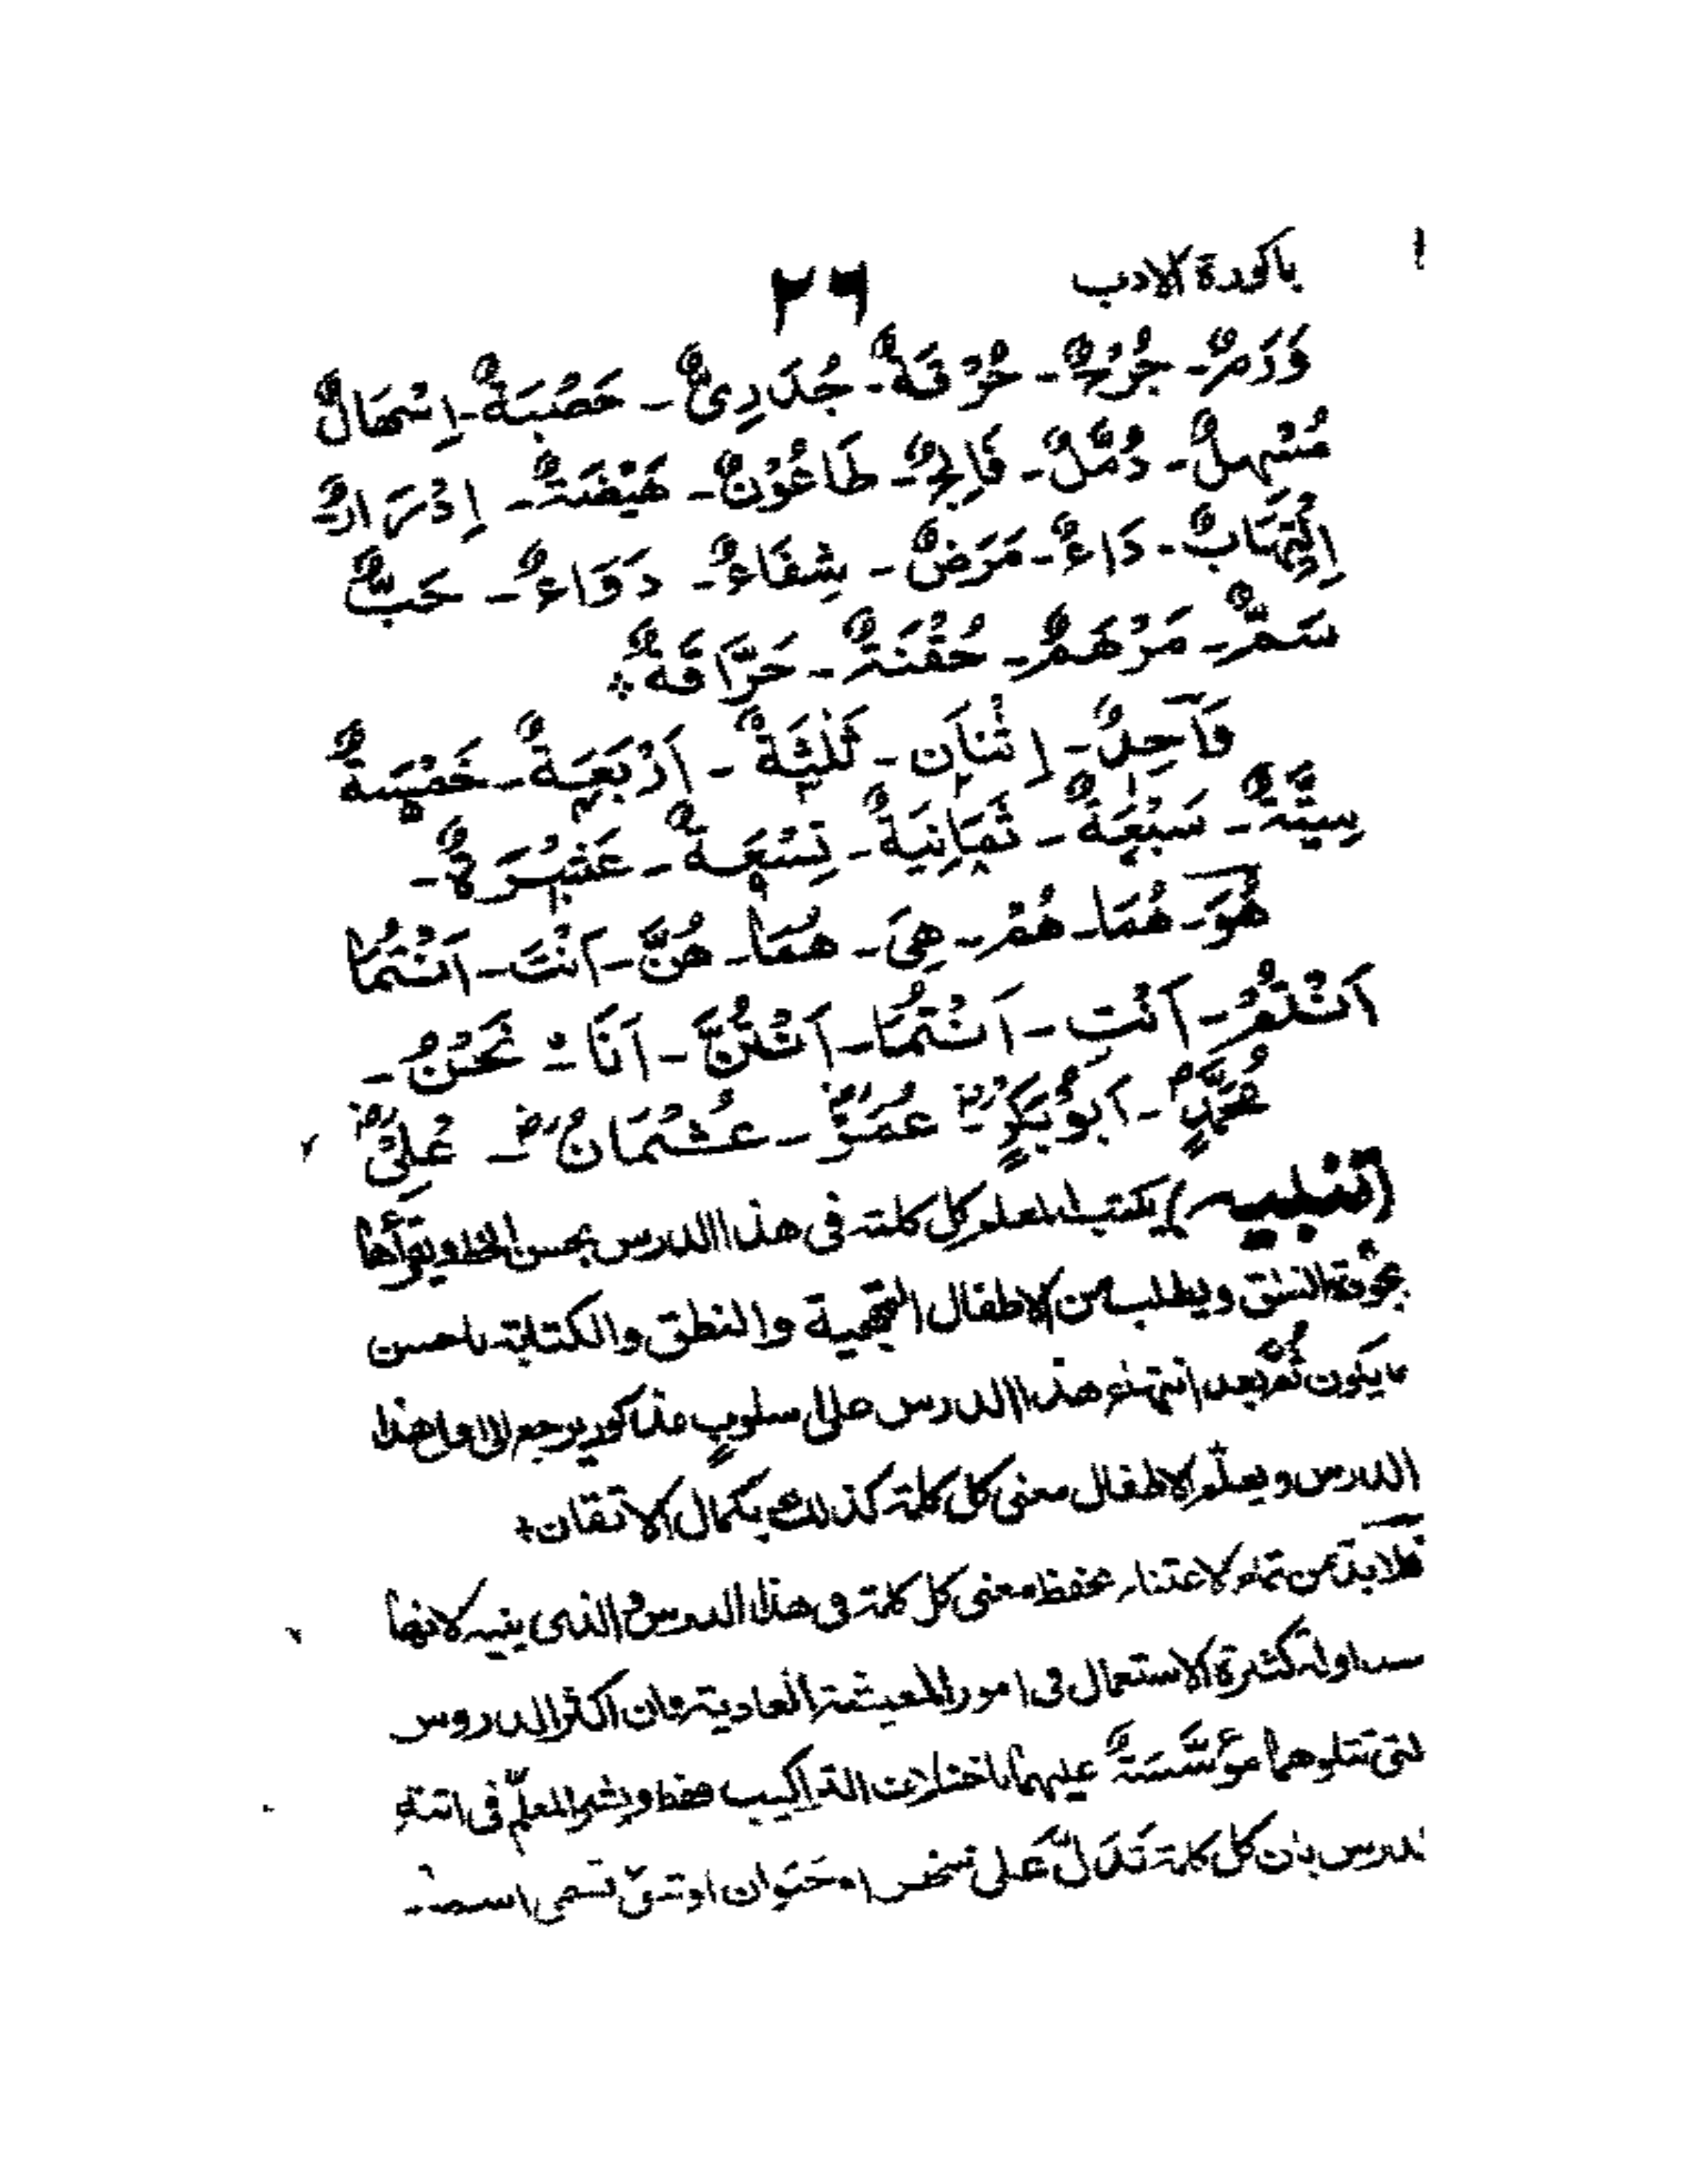 باكورة الادب ٢٦
وَرَمٌ - جُرْحٌ - حُرْقَةٌ - جُدَرِىٌّ - حَصْبَةٌ - اِسْهَالٌ
مُسْهِلٌ - دُمَّلٌ - فَالِجٌ - طَاعُوْنٌ - هَيْضَةٌ - اِدْرَارٌ
اِلْتِهَابٌ - دَاءٌ - مَرَضٌ - شِفَاءٌ - دَوَاءٌ - حَبٌّ
سَمٌّ - مَرْهَمٌ - حُقْنَةٌ - حَرَّاقَةٌ
وَاحِدٌ - اِثْنَانِ - ثَلٰثَةٌ - اَرْبَعَةٌ - خَمْسَةٌ
سِتَّةٌ - سَبْعَةٌ - ثَمَانِيَةٌ - تِسْعَةٌ - عَشَرَةٌ -
هُوَ - هُمَا - هُمْ - هِىَ - هُمَا - هُنَّ - اَنْتَ - اَنْتُمَا
اَنْتُمْ - اَنْتِ - اَنْتُمَا - اَنْتُنَّ - اَنَا - نَحْنُ -
مُحَمَّدٌ - اَبُوْبَكْرٍ - عُمَرُ - عُثْمَانُ - عَلِىٌّ
(تنبيه) يكتب المعلم كل كلمة فى هذا الدرس بحسن الخط ويقرأها
بجودة النطق ويطلب من الاطفال التهجية والنطق والكتابة باحسن
ما يكون ثم بعد انتهاء هذا الدرس على اسلوب مذكور يرجع الى هذا
الدرس ويعلّم الاطفال معنى كل كلمة كذلك بكمال الاتقان
فلا بد من تمام الاعتناء بحفظ معنى كل كلمة فى هذا الدرس والذى يليه لانها
كثيرة الاستعمال فى امور المعيشة العادية فان اكثر الدروس
التى تتلوها مؤسَّسَةٌ عليها باختلاف التراكيب فقط المعلّم فى اثناء
الدرس بان كل كلمة تَدَلُّ عَلىٰ شخص او حَيَوان او شىء تسمى